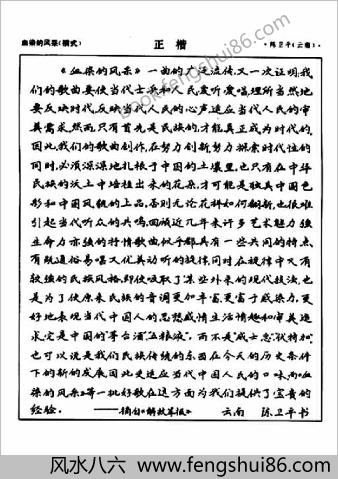 血染的风采(横式)
正楷
·陈卫平(云南)·
《血染的风采》一曲的广泛流传,又一次证明,我
们的歌曲要使当代士兵和人民爱听爱唱,理所当然地
要反映时代,反映当代人民的心声,适应当代人民的审
美需求。然而,只有首先是民族的,才能真正成为时代的。
因此,我们的歌曲创作,在努力创新努力探索时代性的
同时,必须深深地扎根于中国的土壤里,也只有在中华
民族的沃土中培植出来的花朵,才可能是独具中国色
彩和中国风貌的上品。否则无论花样如何翻新,也很难
引起当代听众的共鸣。回顾近几年来许多艺术魅力强
生命力亦强的抒情歌曲似乎都具有一些共同的特点,
有既通俗易唱又优美动听的旋律,同时在旋律中又有
较强的民族风格,即使吸取了某些外来的现代技法,也
是为了使原来民族的音调更加丰富,更富于感染力,更
好地表现当代中国人的思想感情生活情趣和审美追
求,它是中国的"茅台酒""五粮液",而不是"威士忌""伏特加"。
也可以说是我们民族传统的东西在今天的历史条件
下的新的发展,因此更适应当代中国人民的口味。而《血
染的风采》等一批好歌在这方面为我们提供了宝贵的
经验。 ——摘自《解放军报》 云南 陈卫平书
Book.fengshui86.com
风水八六 - www.fengshui86.com